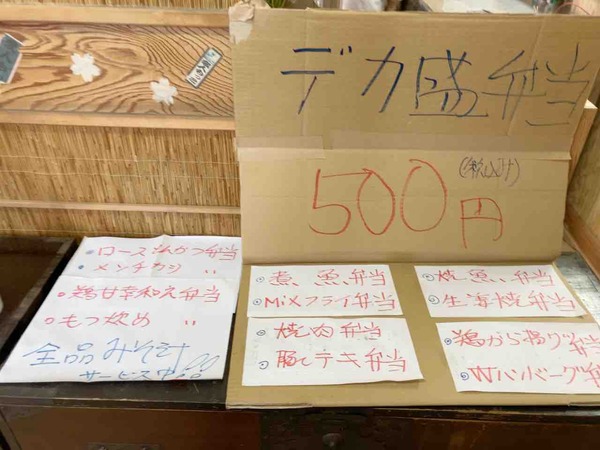 デカ盛弁当
500円
(税込み)
・ロースとんかつ弁当
・メンチカツ 〃
・鶏甘辛和え弁当
・もつ炒め 〃
全品みそ汁
サービス中
・煮魚弁当
・MiXフライ弁当
・焼肉弁当
・豚テキ弁当
・焼魚弁当
・生姜焼弁当
・鶏から揚げ弁当
・Wハンバーグ弁